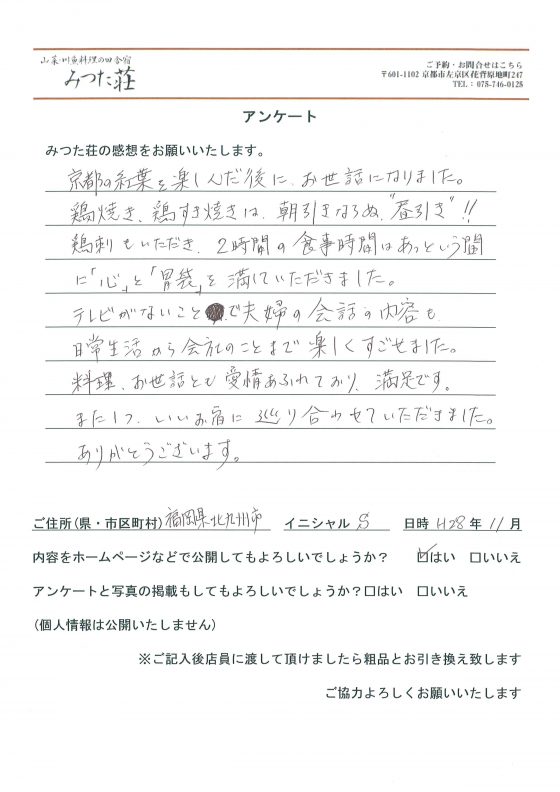 山菜・川魚料理の田舎宿
みつた荘
ご予約・お問合せはこちら
〒601-1102 京都市左京区花脊原地町247
TEL：075-746-0125
アンケート
みつた荘の感想をお願いいたします。
京都の紅葉を楽しんだ後に、お世話になりました。
鶏焼き、鶏すき焼きは、朝引きならぬ、"昼引き"!!
鶏刺もいただき、2時間の食事時間はあっという間
に「心」と「胃袋」を満していただきました。
テレビがないことで夫婦の会話の内容も
日常生活から会社のことまで楽しくすごせました。
料理、お世話とも愛情あふれており、満足です。
また1つ、いいお宿に巡り合わせていただきました。
ありがとうございます。
ご住所(県・市区町村) 福岡県北九州市 イニシャル S 日時 H28年 11月
内容をホームページなどで公開してもよろしいでしょうか？ ☑はい □いいえ
アンケートと写真の掲載もしてもよろしいでしょうか？□はい □いいえ
(個人情報は公開いたしません)
※ご記入後店員に渡して頂けましたら粗品とお引き換え致します
ご協力よろしくお願いいたします